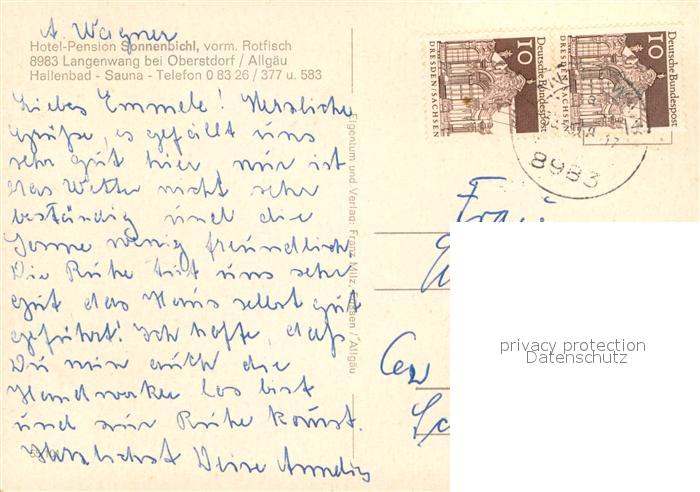 A. Wagner
Hotel-Pension Sonnenbichl, vorm. Rotfisch
8983 Langenwang bei Oberstdorf / Allgäu
Hallenbad - Sauna - Telefon 0 83 26 / 377 u. 583
Liebes Emmele! Herzliche
Grüße, es gefällt uns
sehr gut hier, nur ist
das Wetter nicht sehr
beständig und die
Sonne wenig freundlich.
Die Ruhe tut uns sehr
gut das Haus selbst gut
geführt! Ich hoffe, daß
Du nun auch die
Handwerker los bist
und zur Ruhe komst.
Herzlichst Deine
Eigentum und Verlag: Franz Milz, Füssen / Allgäu
10
Deutsche Bundespost
DRESDEN-SACHSEN
10
Deutsche Bundespost
DRESDEN-SACHSEN
8983
Frau
privacy protection
Datenschutz